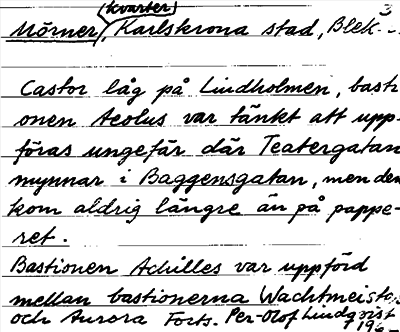 3
(kvarter)
Mörner, Karlskrona stad, Blek.
Castor låg på Lindholmen, basti
onen Aeolus var tänkt att upp-
föras ungefär där Teatergatan
mynnar i Baggensgatan, men den
kom aldrig längre än på pappe-
ret.
Bastionen Achilles var uppförd
mellan bastionerna Wachtmeister
och Aurora Forts. Per-Olof Lindqvist